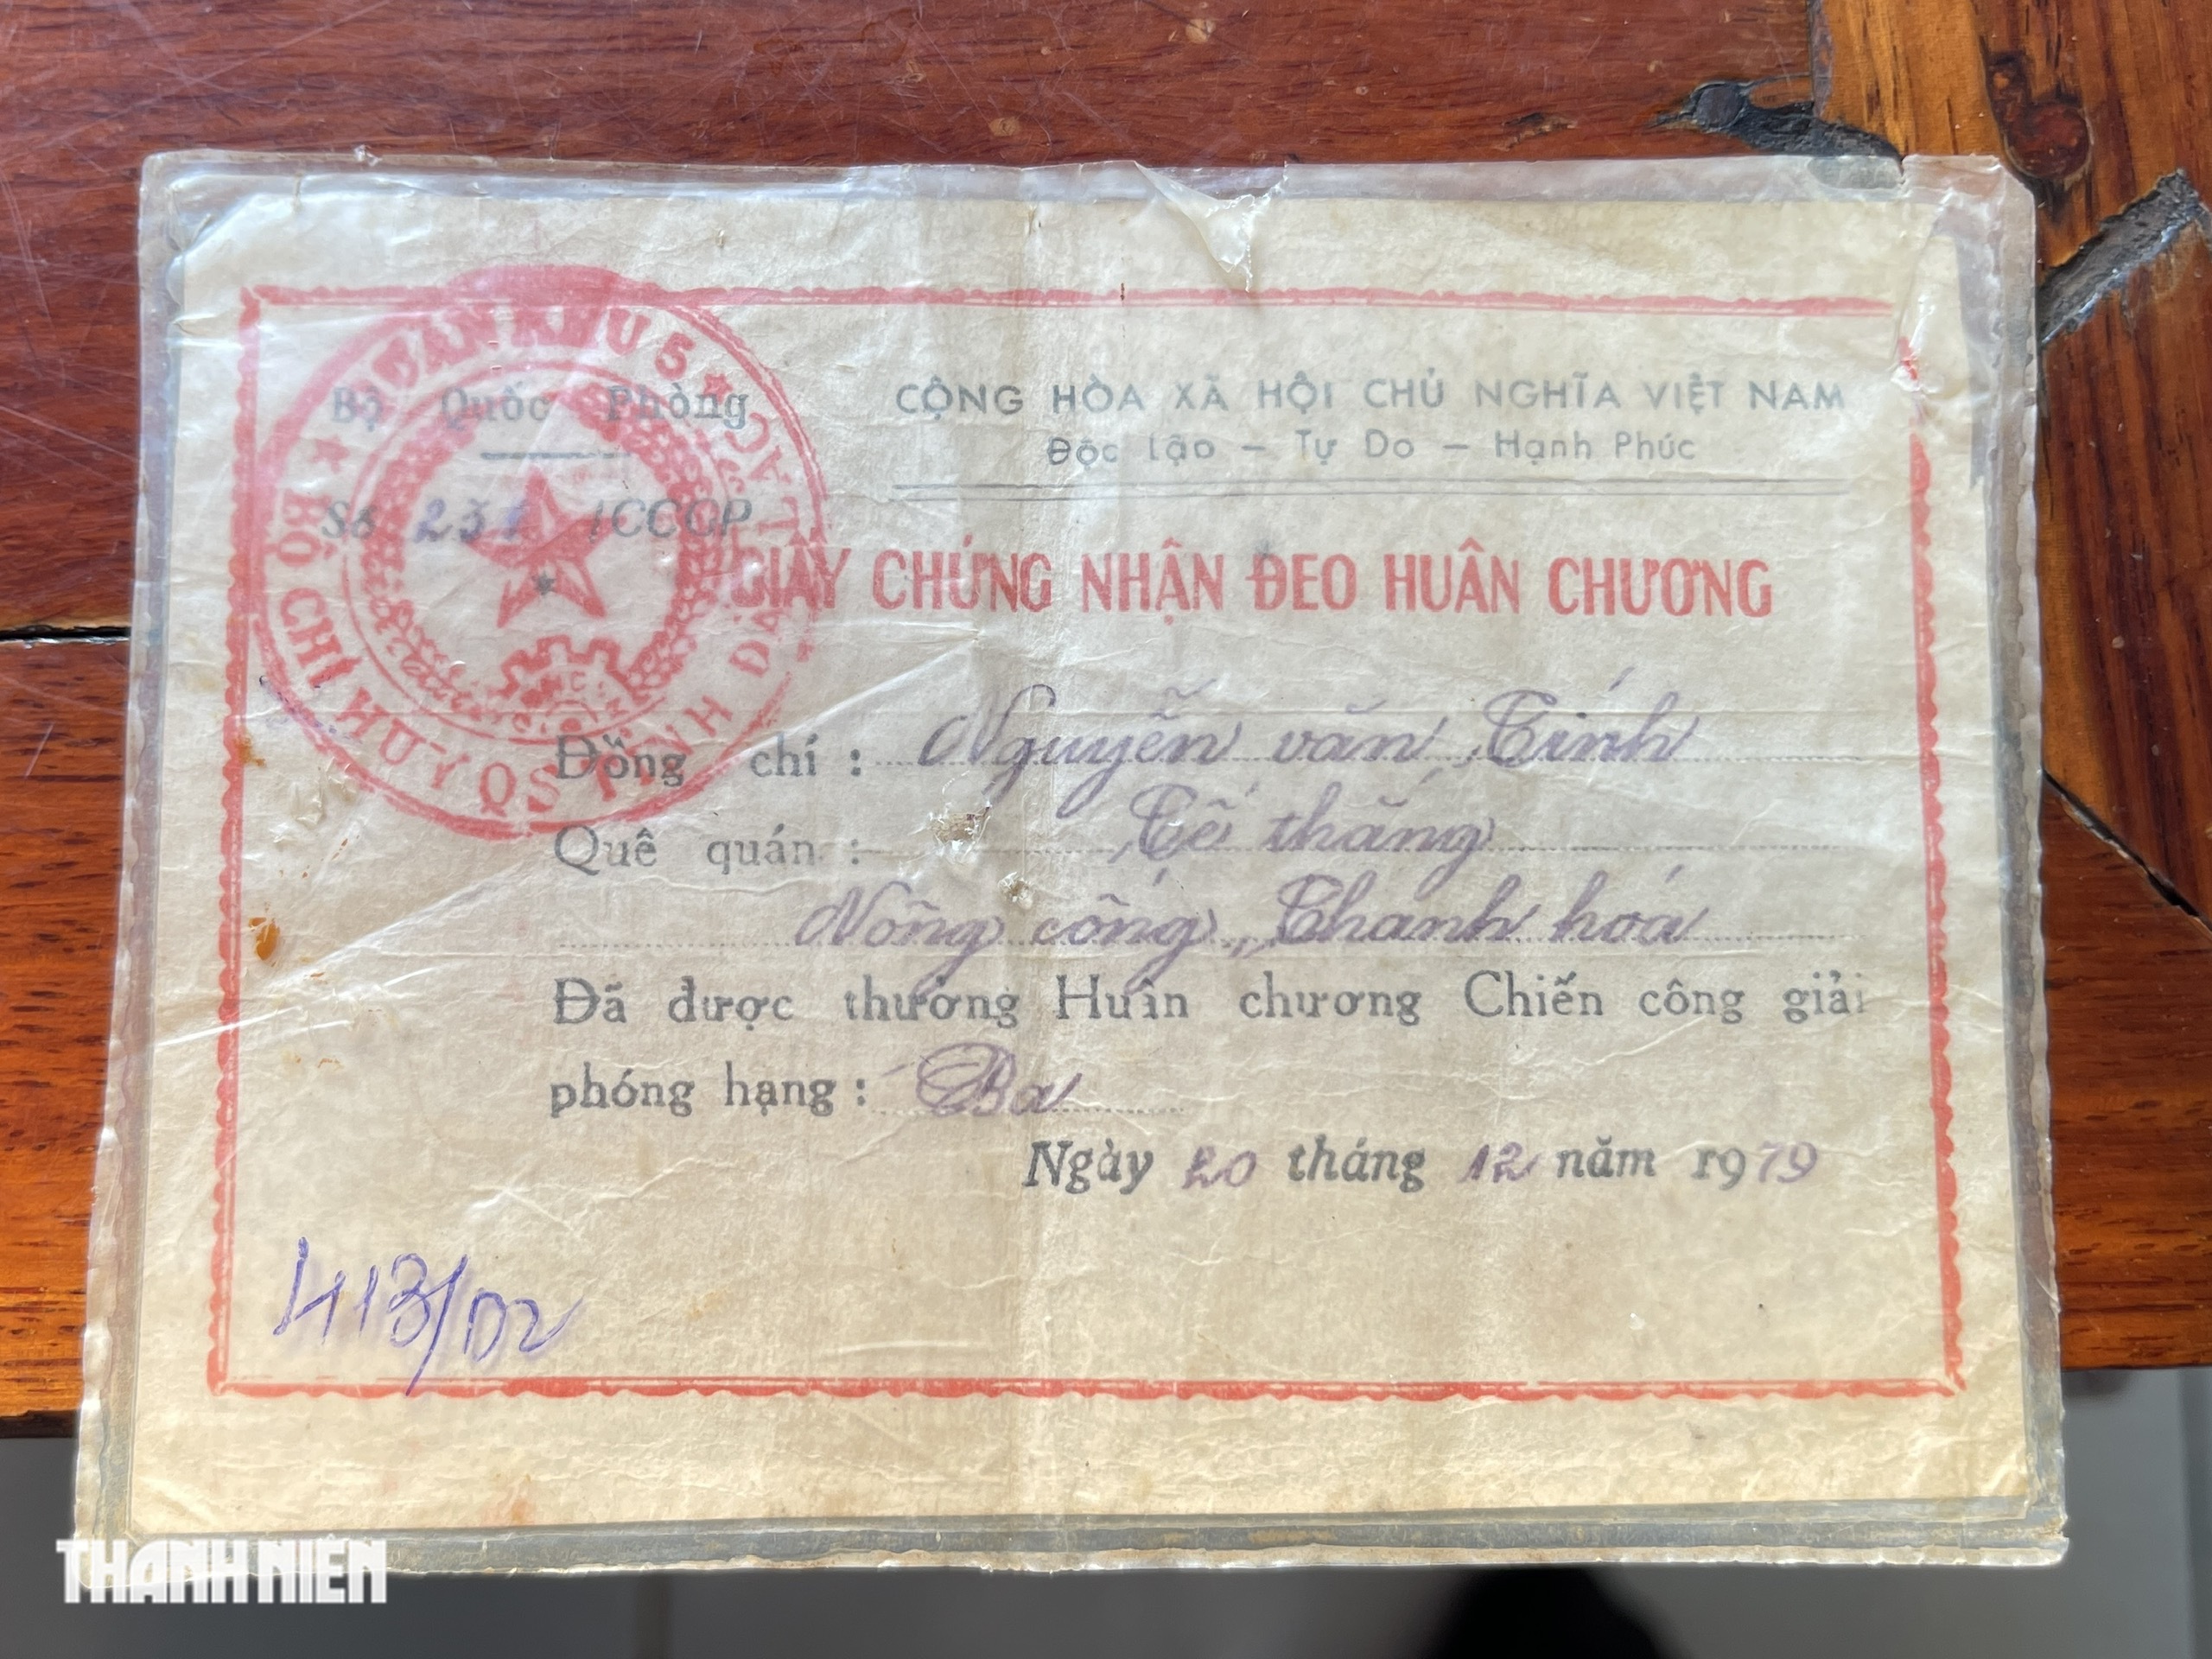 Bộ Quốc Phòng
CỘNG HÒA XÃ HỘI CHỦ NGHĨA VIỆT NAM
Độc Lập – Tự Do – Hạnh Phúc
Số 231 /CCGP
GIẤY CHỨNG NHẬN ĐEO HUÂN CHƯƠNG
QUÂN KHU 5
BỘ CHỈ HUY QS TỈNH ĐẮC LẮC
Đồng chí : Nguyễn văn Tính
Quê quán : Tế thắng
Nông cống, Thanh hoá
Đã được thưởng Huân chương Chiến công giải
phóng hạng : Ba
Ngày 20 tháng 12 năm 1979
413/02
THANH NIÊN